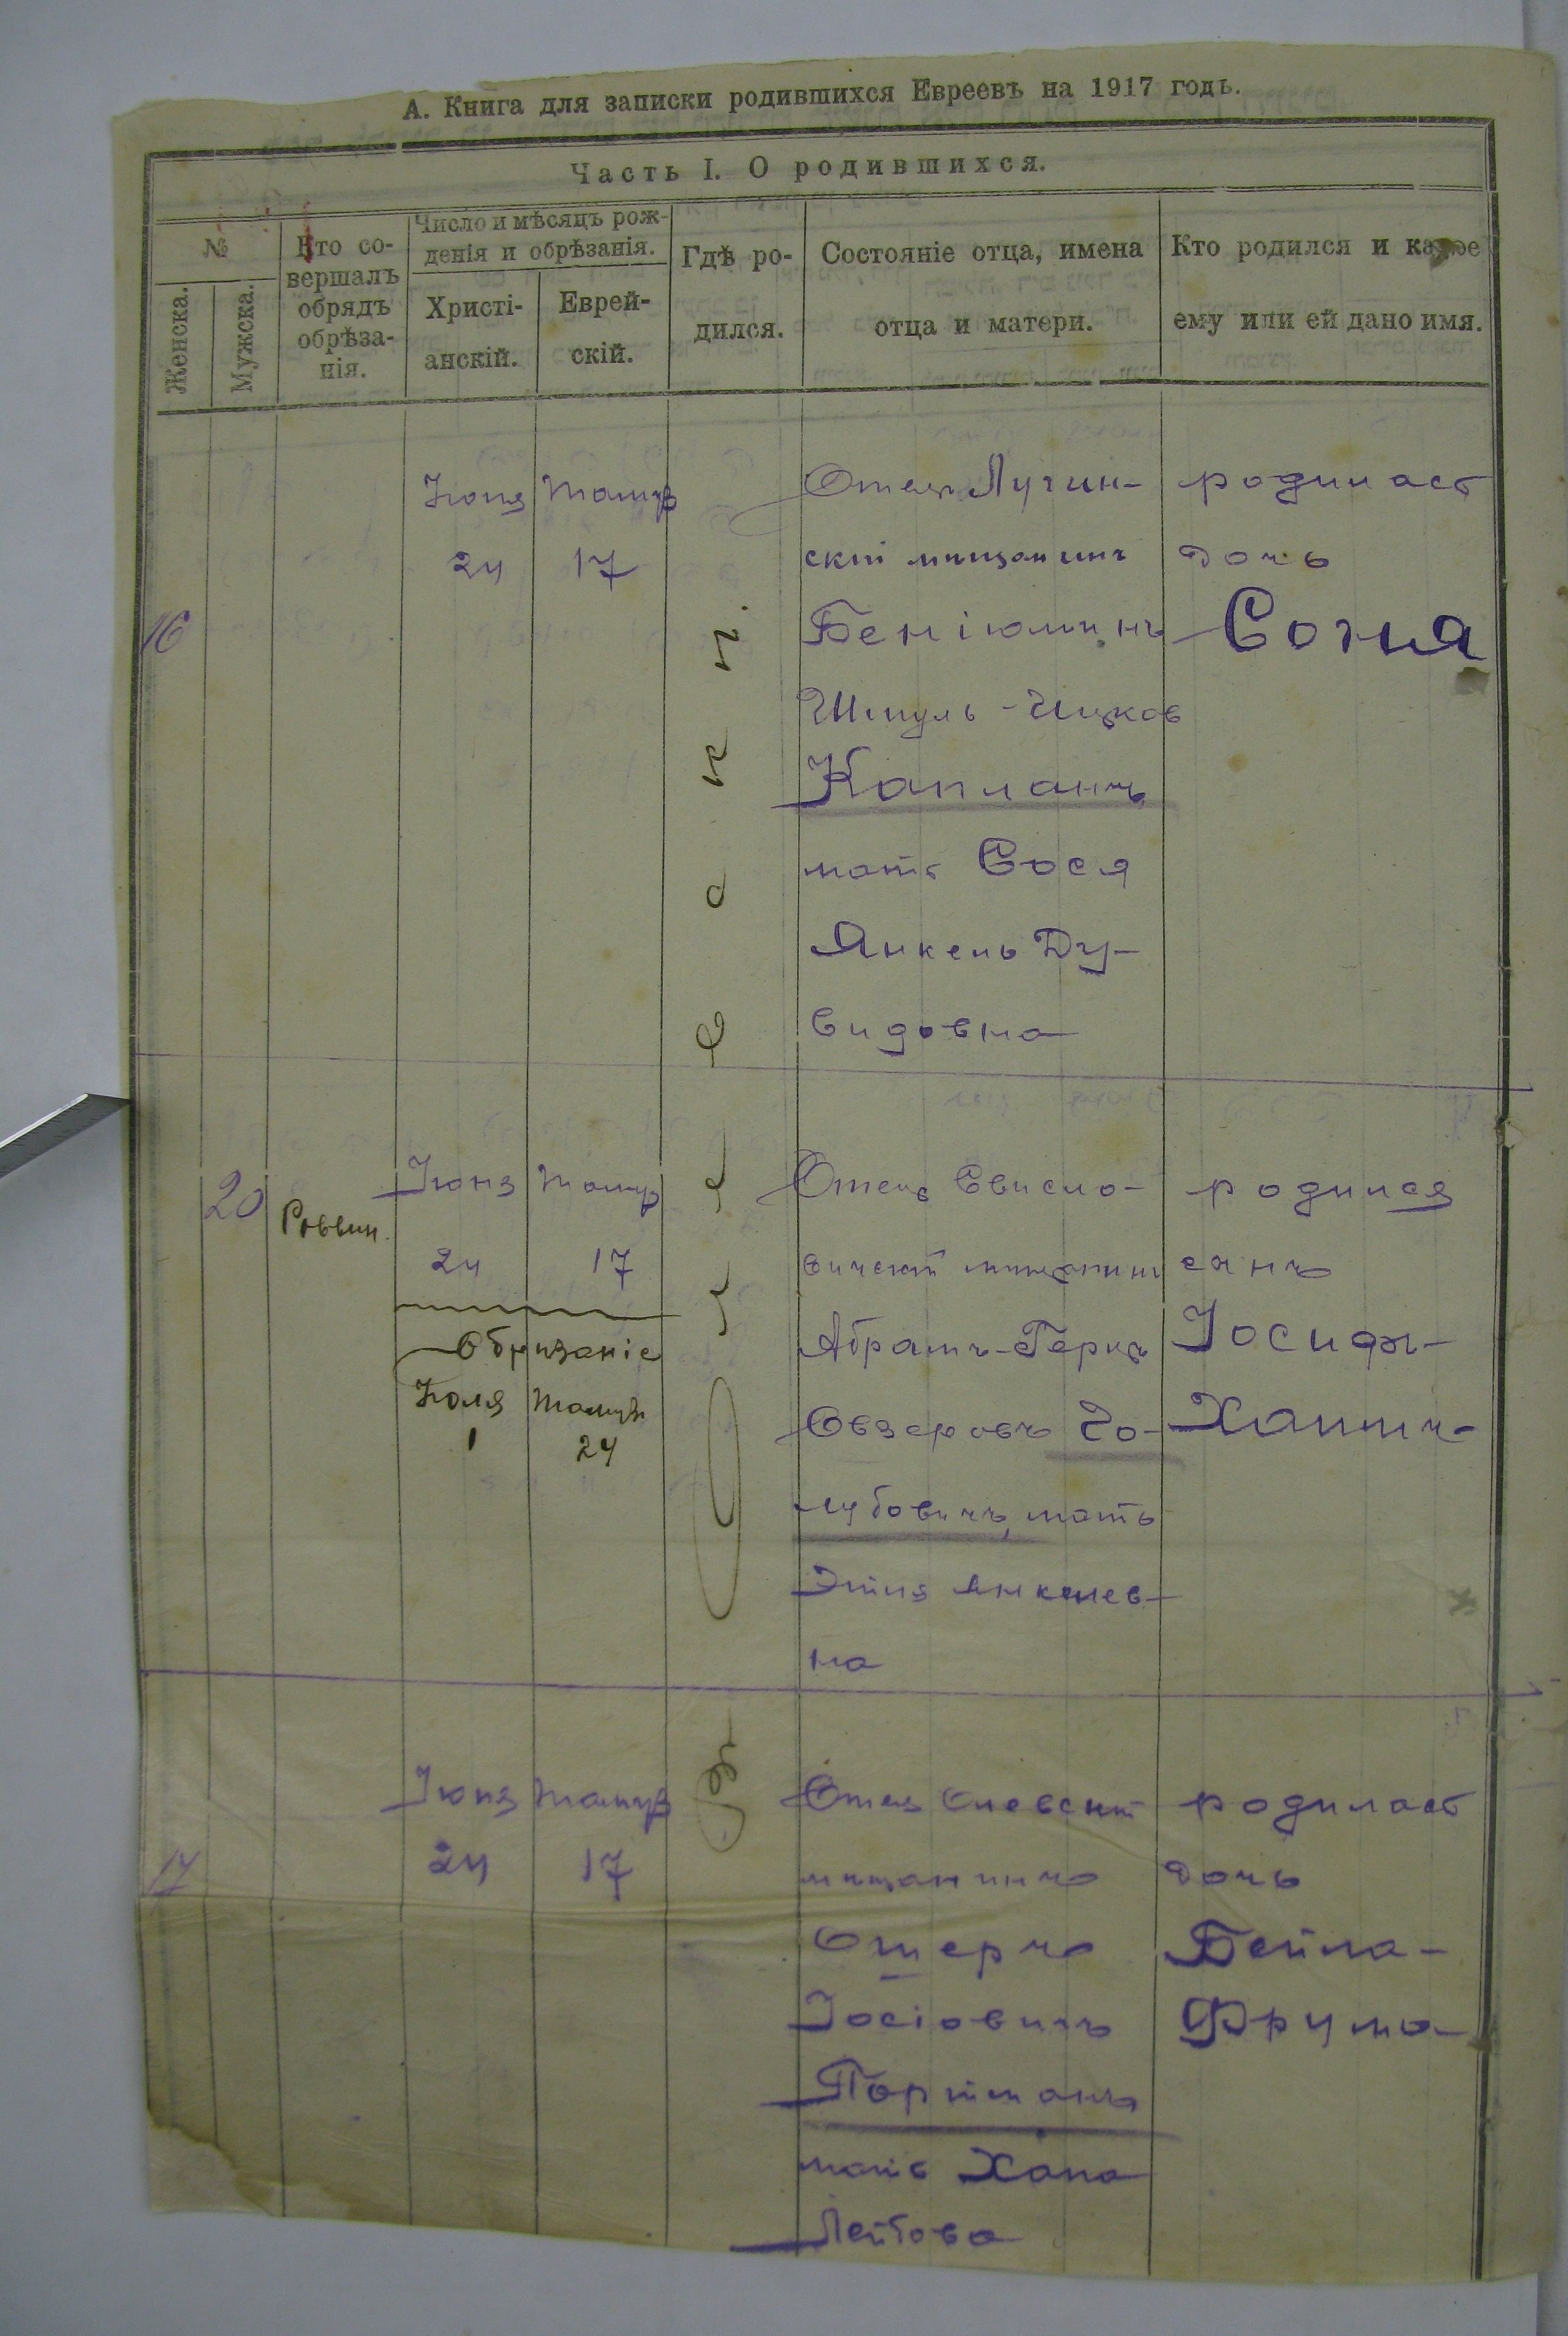 А. Книга для записки родившихся Евреевъ на 1917 годъ.
Часть I. О родившихся.
№
Женска.
Мужска.
Кто со-
вершалъ
обрядъ
обрѣза-
нія.
Число и мѣсяцъ рож-
денія и обрѣзанія.
Христі-
анскій.
Еврей-
скій.
Гдѣ ро-
дился.
Состояніе отца, имена
отца и матери.
Кто родился и какое
ему или ей дано имя.
16
Іюня
24
Тамуз
17
Отецъ Лугин-
скій мищанинъ
Беніюминъ
Шмуль-Ицков
Капланъ
мать Сося
Янкель Ду-
видовна
родилась
дочь
Соня
20
Раввин.
Іюня
24
Тамуз
17
Обризаніе
Іюля
1
Тамуз
24
Отецъ Свисло-
вичскій мищанин
Абрамъ-Герцъ
Овзеровъ Го-
лубовичъ, мать
Этля Янкелев-
на
родился
сынъ
Іосифъ-
Хаимъ-
17
Іюня
24
Тамуз
17
Отецъ Олевскій
мищанинъ
Ошеръ
Іосіовичъ
Портманъ
мать Хана
Лейбова
родилась
дочь
Бейла-
Фрума-